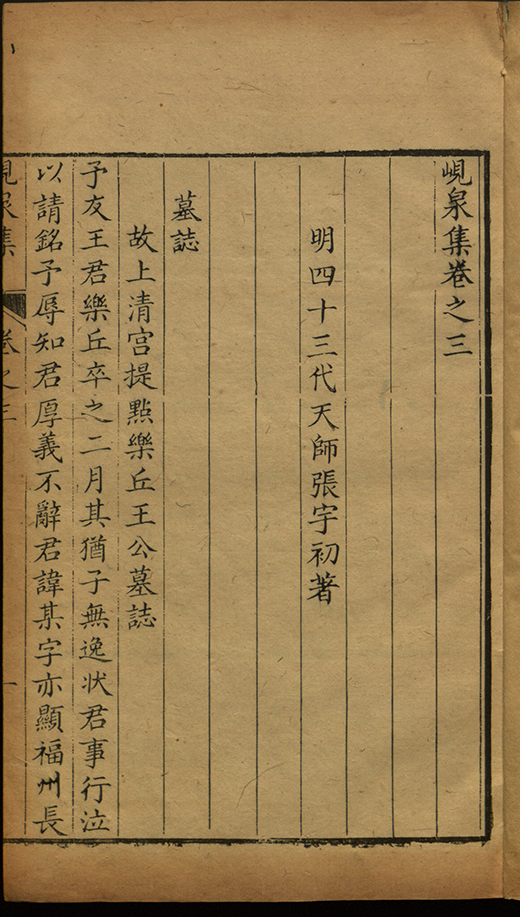 峴泉集卷之三
明四十三代天師張宇初著
墓誌
故上清宮提點樂丘王公墓誌
予友王君樂丘卒之二月其猶子無逸状君事行泣
以請銘予辱知君厚義不辭君諱某字亦顯福州長
峴泉集 卷之三 一